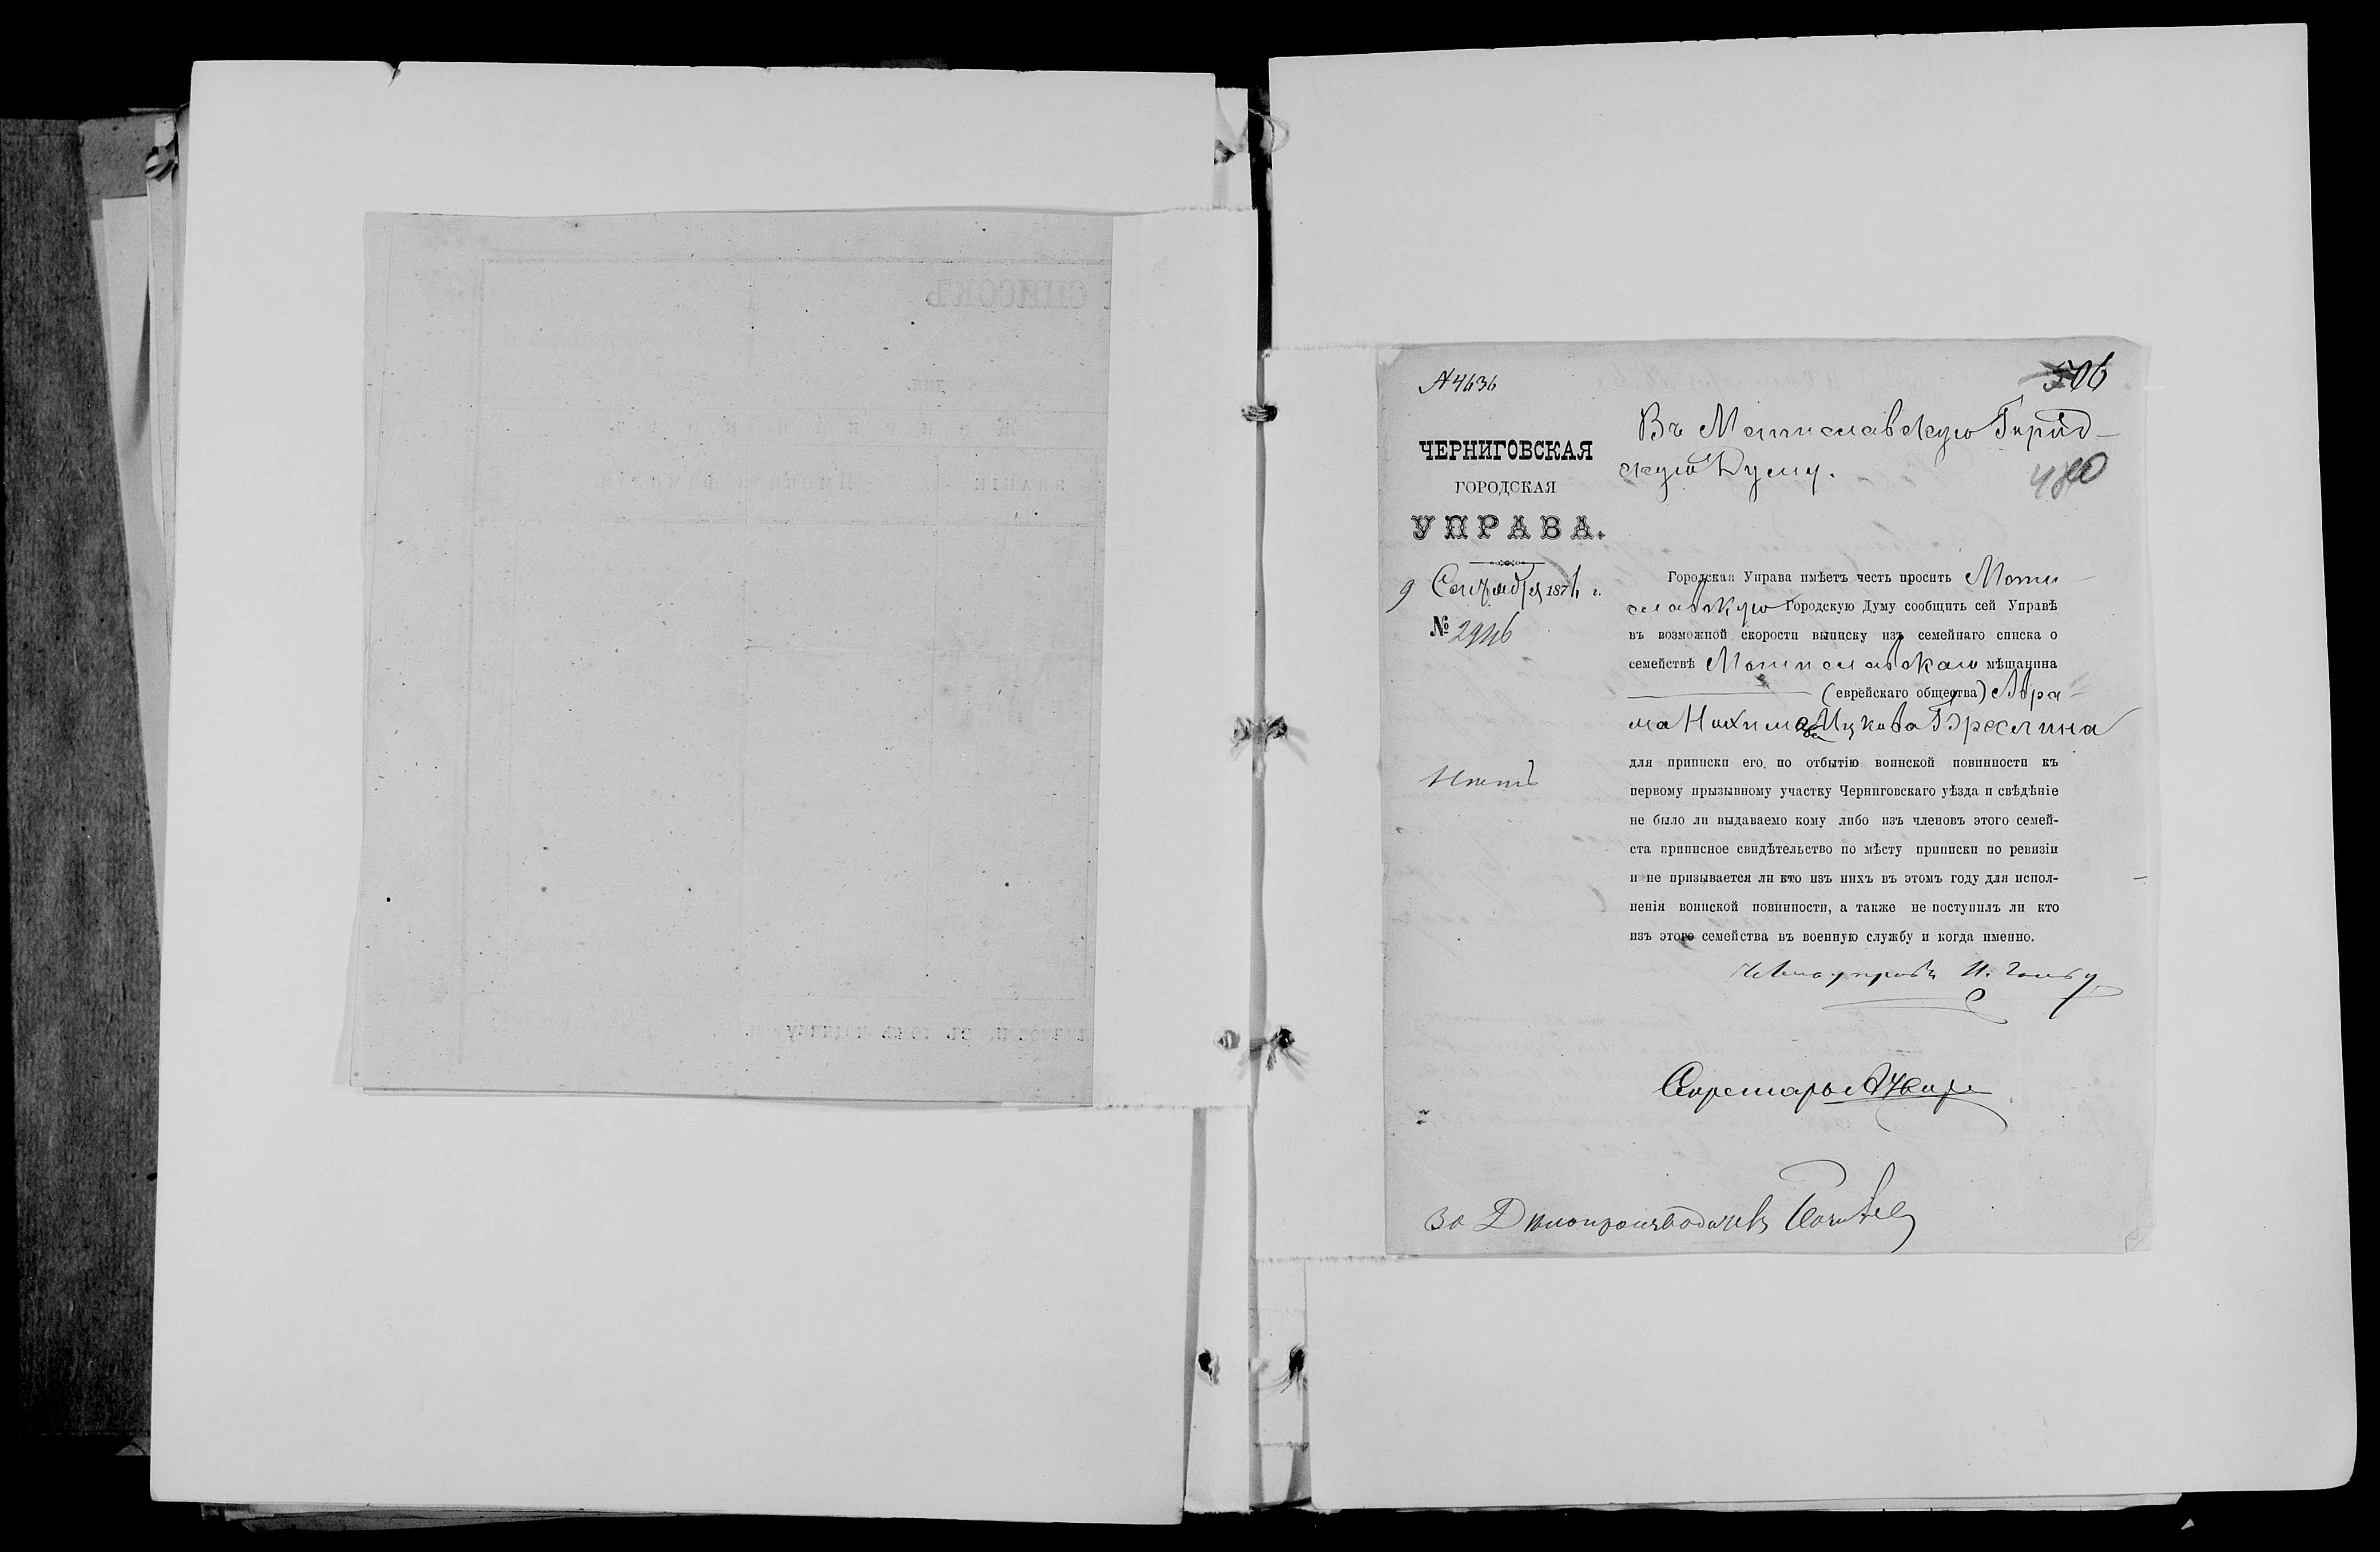 СПИСОКЪ
ЗВАНІЕ
А 4636
506
480
ЧЕРНИГОВСКАЯ
ГОРОДСКАЯ
УПРАВА.
9 Сентября 1876 г.
№ 2946
Въ Мстиславскую Город-
скую Думу.
Городская Управа имѣетъ честь просить Мсти-
славскую Городскую Думу сообщить сей Управѣ
въ возможной скорости выписку изъ семейнаго списка о
семействѣ Мстиславскаго мѣщанина
(еврейскаго общества) Абра-
ма Нохимова Ицкова Бреслина
для приписки его по отбытію воинской повинности къ
первому призывному участку Черниговскаго уѣзда и свѣдѣніе
не было ли выдаваемо кому либо изъ членовъ этого семей-
ста приписное свидѣтельство по мѣсту приписки по ревизіи
и не призывается ли кто изъ нихъ въ этомъ году для испол-
ненія воинской повинности, а также не поступилъ ли кто
изъ этого семейства въ военную службу и когда именно.
Секретарь
За Дѣлопроизводителя